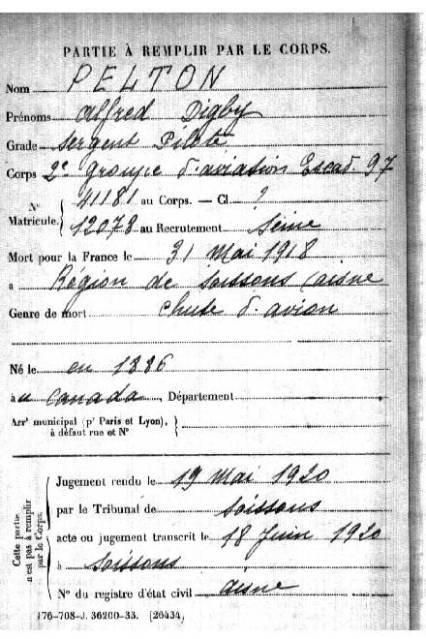 PARTIE À REMPLIR PAR LE CORPS.
Nom PELTON
Prénoms Alfred Digby
Grade Sergent Pilote
Corps 2e Groupe d'aviation Escad. 97
No 41181 au Corps. — Cl ?
Matricule. 12078 au Recrutement Seine
Mort pour la France le 31 Mai 1918
à Région de Soissons (aisne
Genre de mort chute d'avion
Né le en 1886
à u Canada, Département
Arrt municipal (pr Paris et Lyon),
à défaut rue et No
Cette partie
n'est pas à remplir
par le Corps.
Jugement rendu le 19 Mai 1920
par le Tribunal de Soissons
acte ou jugement transcrit le 18 Juin 1920
à Soissons
No du registre d'état civil aisne
176-708-J. 36200-33. (26434)